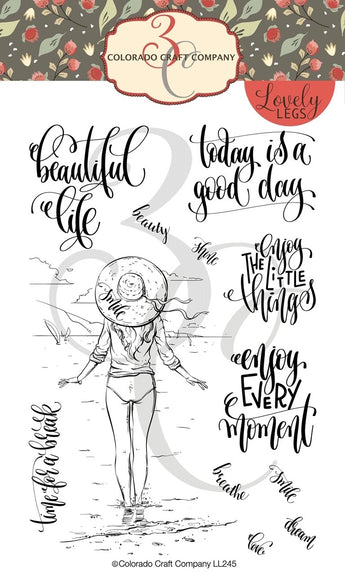 3C
COLORADO CRAFT COMPANY
Lovely
LEGS
beautiful
life
today is a
good day
beauty
shine
enjoy
THE LITTLE
things
smile
enjoy
EVERY
moment
time for a break
breathe
smile
dream
love
©Colorado Craft Company LL245